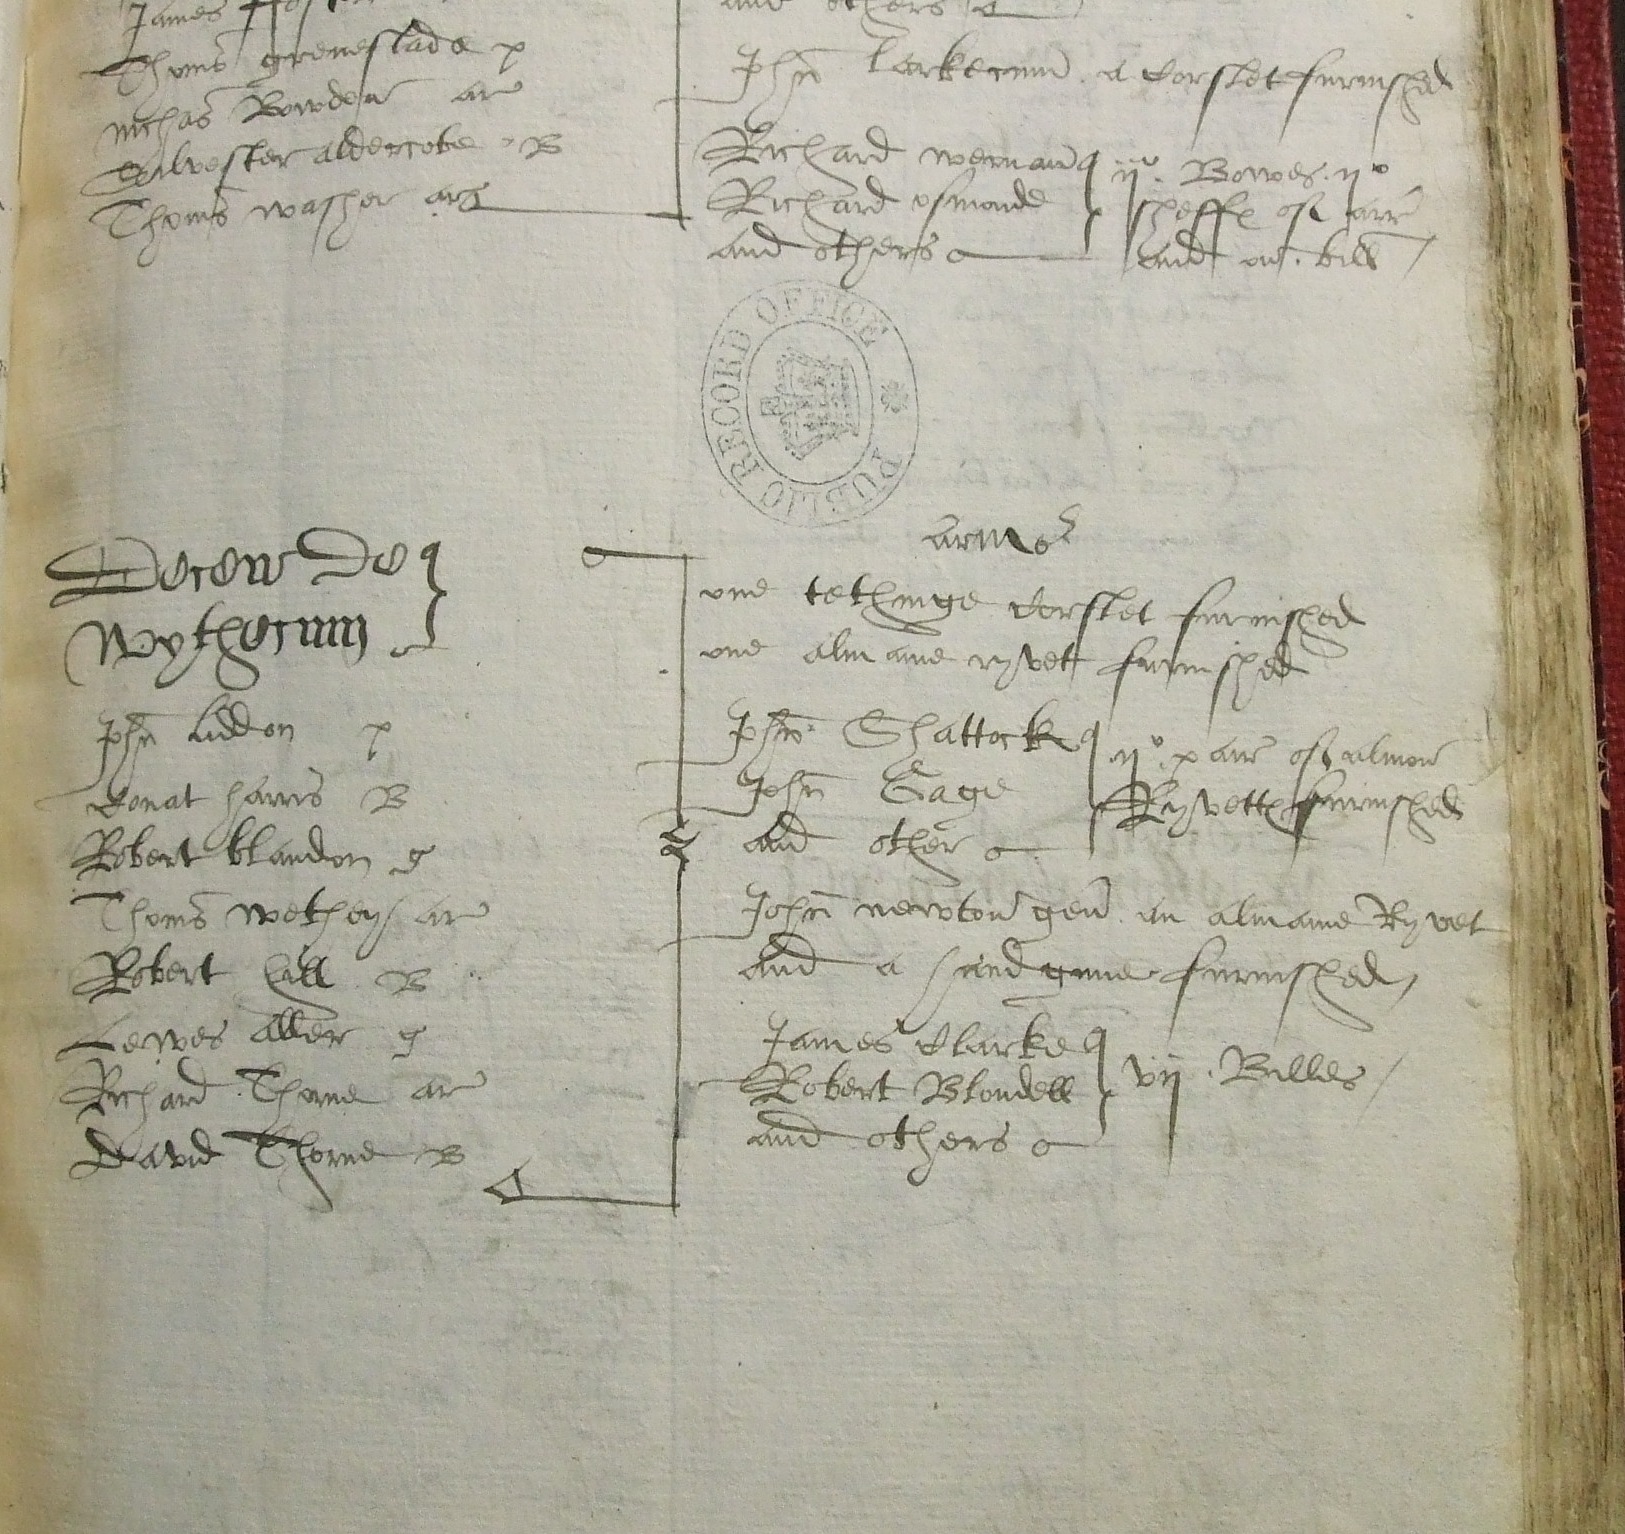 James
Thoms greneslade p
nichas Bowden ar
Silvester aldercobe B
Thoms washer ar
and others
Jhn larkecum a corslet furnished
Richard weman
Richard osmonde
and others
ij Bowes ij
sheffe of arr
and on bill
PUBLIC RECORD OFFICE
Decow de
Wythecum
Jhn liddon p
Conat harris B
Robert blandon g
Thoms wethey ar
Robert hill B
Lewes aller g
Richard Thorne ar
David Thorne B
armes
one tethinge corslet furnished
one almane ryvett furnished
Jhn Shattock
John Gage
and other
ij paire of almon
Ryvettes furnished
John newton gen an almane Ryvet
and a hand gune furnished
James Clarke
Robert Blondell
and others
vij Billes